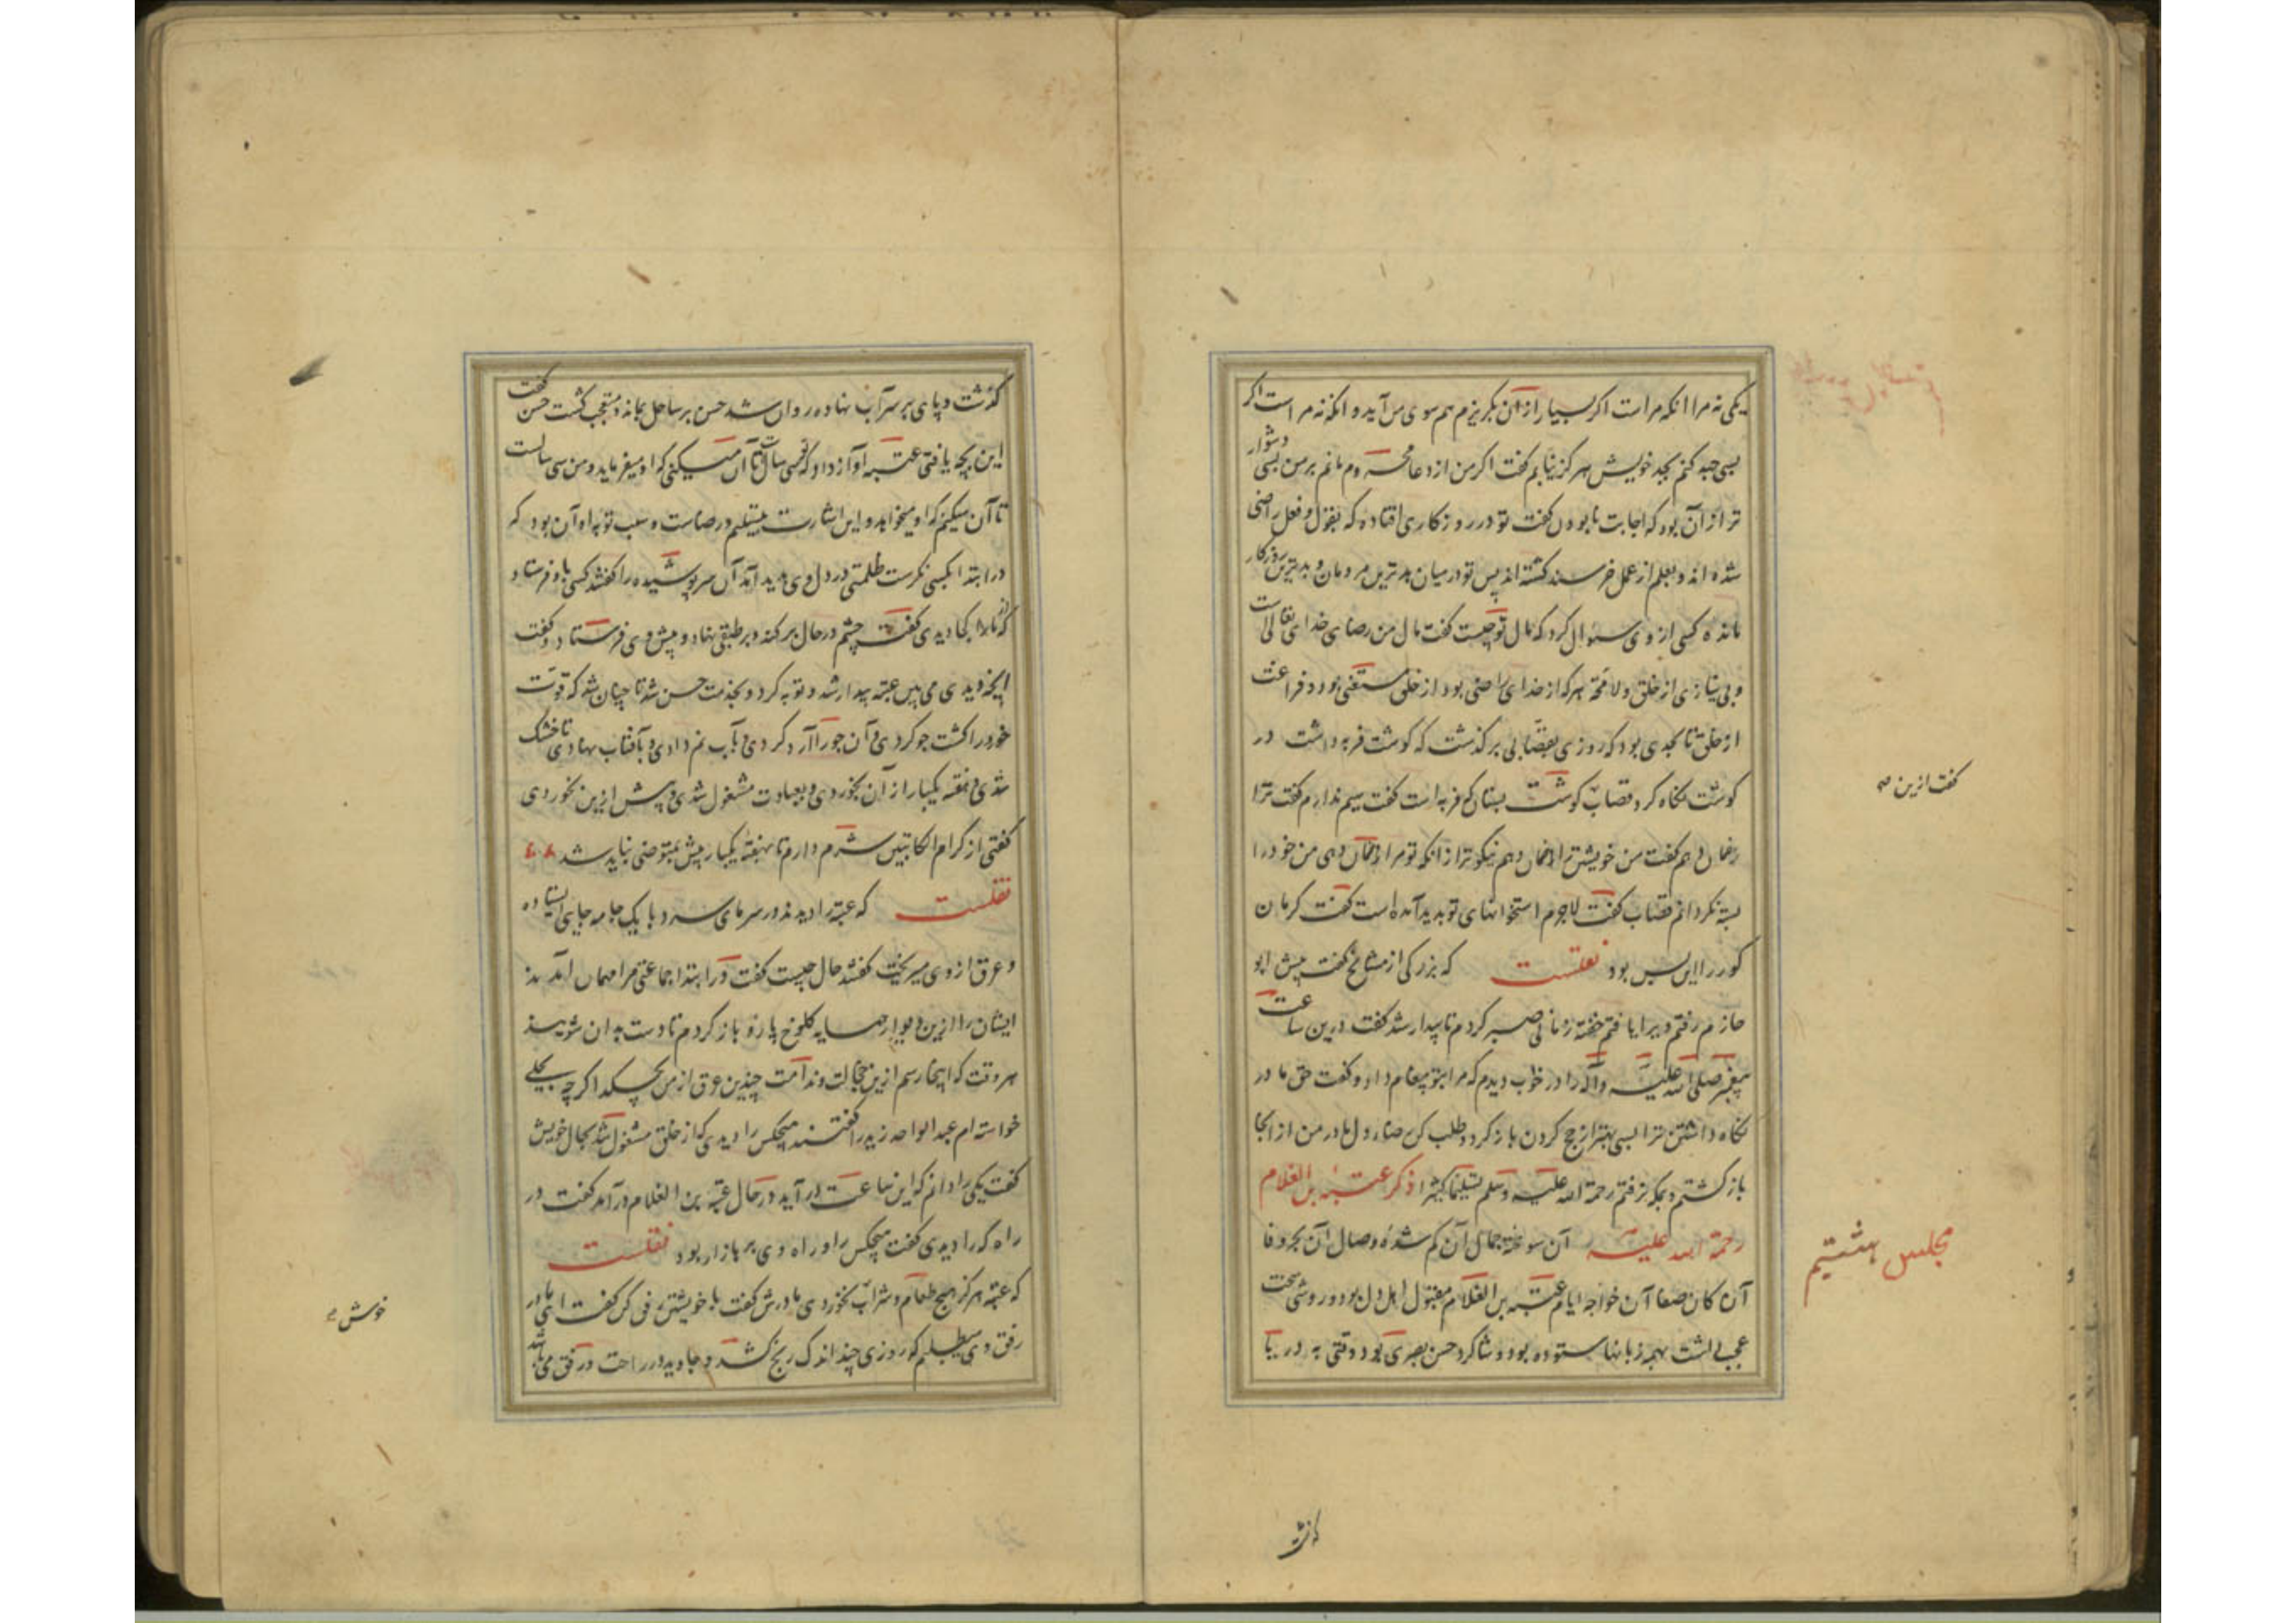 یکی نه مرا انکه مراست اکر بسیار ازان بکریزم هم سوی من آید و انکه نه مراست اکر
بسی جهد کنم بجهد خویش هرکز نیابم کفت اکر من از دعا محروم مانم بر من بسی دشوار
تر ازان بود که اجابت نا بودن کفت تو در روزکاری افتاده که بقول و فعل راضی
شده اند و بعلم از عمل خرسند کشته اند پس تو در میان بدترین مردمان و بدترین روزکار
مانده کسی از وی سوال کرد که مال تو چیست کفت مال من رضای خدای تعالی است
و بی نیازی از خلق و لا محة هرکه از خدای راضی بود از خلق مستغنی بود و فراغت
از خلق تا بحدی بود که روزی بقصابی برکذشت که کوشت فربه داشت در
کوشت نکاه کرد قصاب کوشت بستان که فربه است کفت سیم ندارم کفت ترا
زمان دهم کفت من خویشتن را زمان دهم نیکوتر از انکه تو مرا زمان دهی من خود را
بسته نکردانم قصاب کفت لاجرم استخوانهای تو پدید آمده است کفت کرمان
کور را این بس بود نقلست که بزرکی از مشایخ کفت پیش ابو
حازم رفتم ویرا یافتم خفته زمانی صبر کردم تا بیدار شد کفت درین ساعت
پیغمبر صلی الله علیه و آله را در خواب دیدم که مرا بتو پیغام داد و کفت حق مادر
نکاه داشتن ترا بسی بهتر از حج کردن باز کرد و طلب کن رضاء دل مادر من از انجا
باز کشتم و بمکه نرفتم رحمة الله علیه و سلم تسلیما کثیرا ذکر عتبه بن الغلام
رحمة الله علیه آن سوخته جمال آن کم شده وصال آن بحر وفا
آن کان صفا آن خواجه ایام عتبه بن الغلام مقبول اهل دل بود و روشی سخت
عجب داشت بهمه زبانها ستوده بود و شاکرد حسن بصری بود وقتی به دریا
کفت ازین صه
مجلس هشتیم
کذشت
کذشت و پای بر سر آب نهاده روان شد حسن بر ساحل بمانده متعجب کشت حسن کفت
این بچه یافتی عتبه آواز داد که تو سی سالست تا آن میکنی که او میفرماید و من سی سالست
تا آن میکنم که او میخواهد و این اشارت بتسلیم و رضاست و سبب توبه او آن بود که
در ابتدا بکسی نکرست ظلمتی در دل وی پدید آمد آن سر پوشیده را کفتند کسی باو فرستاد
که از ما را کجا دیدی کفت چشم در حال برکند و بر طبقی نهاد و پیش وی فرستاد و کفت
اینچه دیدی می بین عتبه بیدار شد و توبه کرد و بخدمت حسن شد تا چنان شد که قوت
خود را کشت جو کردی و آن جو را آرد کردی و بآب نم دادی و بآفتاب نهادی تا خشک
شدی و هفته یکبار از آن بخوردی و بعبادت مشغول شدی و پیش ازین نخوردی
کفتی از کرام الکاتبین شرم دارم تا بهفته یکبار پیش بمتوضی نباید شد
نقلست که عتبه را دیدند در سرمای سرد با یک جامه جای ایستاده
و عرق از وی میریخت کفتند حال چیست کفت در ابتدا جماعتی مرا مهمان آمدند
ایشان را ازین دیوار همسایه کلوخ پاره باز کردم تا دست بدان شویند
هر وقت که اینجا رسم ازین خجالت و ندامت چندین عرق از من بچکد اکرچه بحلی
خواسته ام عبد الواحد زید را کفتند هیچکس را دیدی که از خلق مشغول شد بحال خویش
کفت یکی را دانم که این ساعت در آید در حال عتبه بن الغلام در آمد کفت در
راه که را دیدی کفت هیچکس را و راه وی بر بازار بود نقلست
که عتبه هرکز هیچ طعام و شراب نخوردی مادرش کفت با خویشتن رفق کن کفت ای مادر
رفق وی میطلبم کو روزی چند اندک رنج کشد و جاوید در راحت و رفق می باشد
خوش